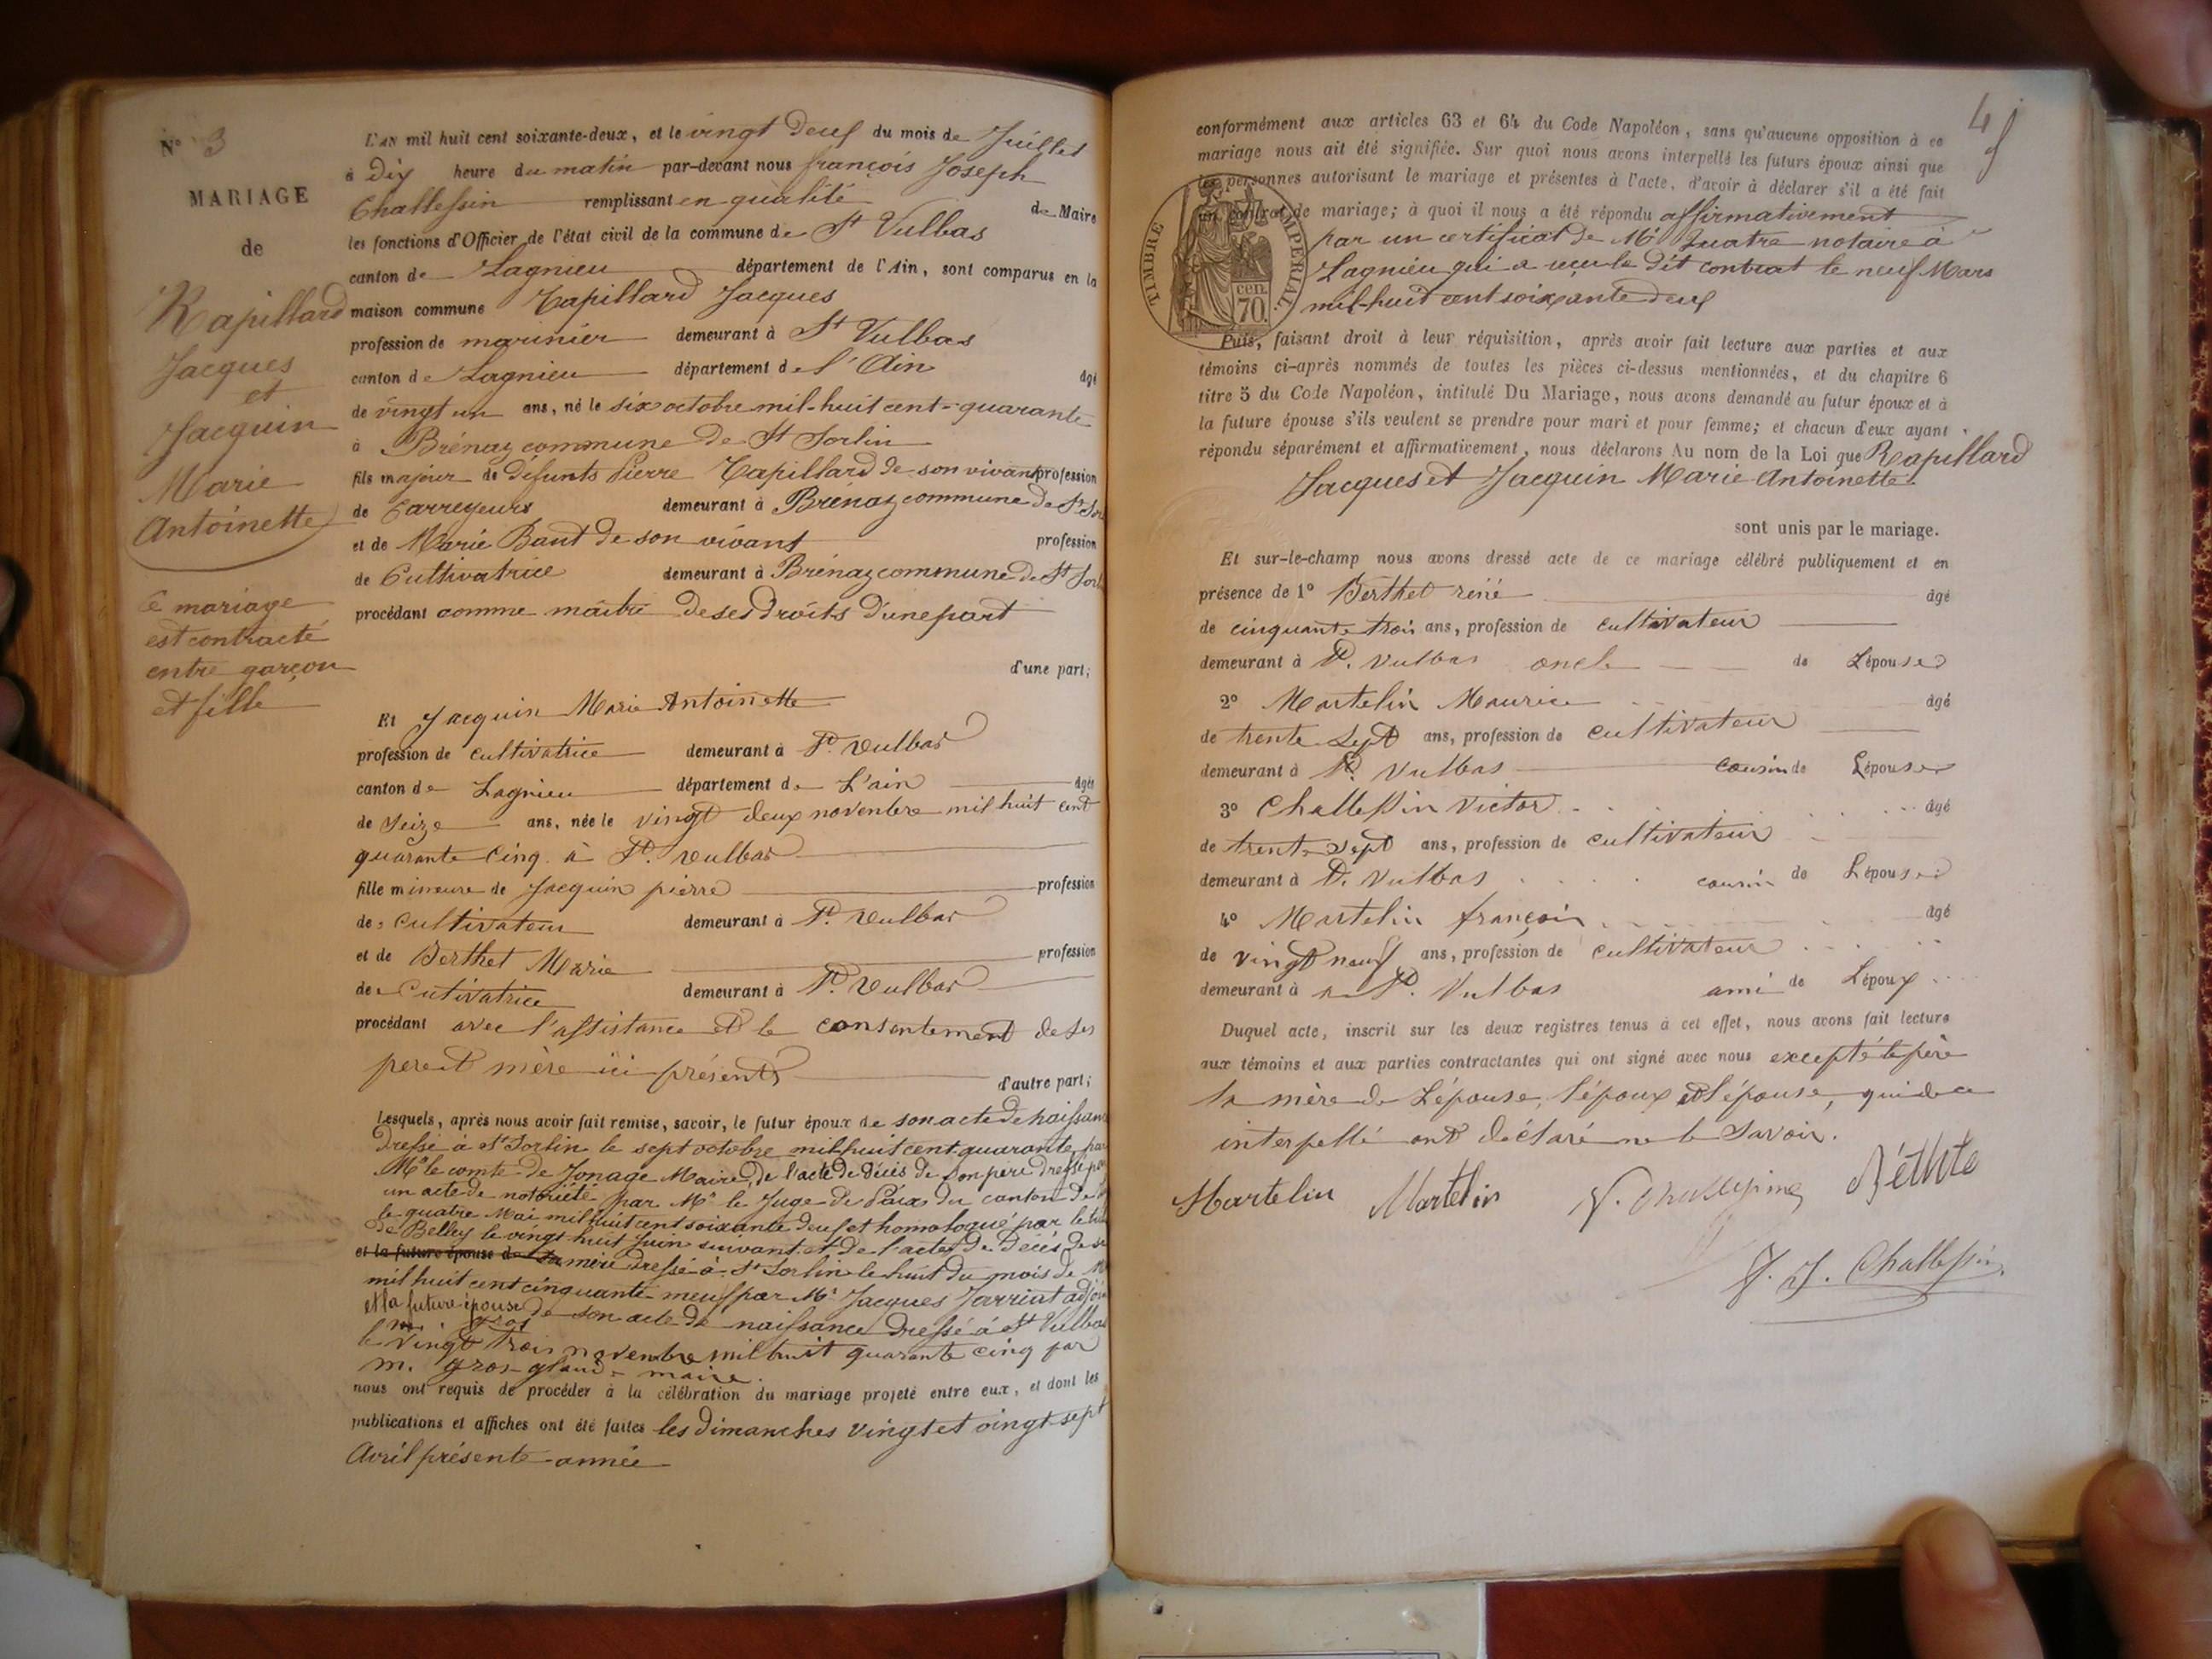 N° 3
MARIAGE
de
Rapillard
Jacques
et
Jacquin
Marie
Antoinette
Ce mariage
est contracté
entre garçon
et fille
L'AN mil huit cent soixante-deux, et le vingt deux du mois de Juillet
à Dix heure du matin par-devant nous françois Joseph
Challessin remplissant en qualité de Maire
les fonctions d'Officier de l'état civil de la commune de St Vulbas
canton de Lagnieu département de l'Ain, sont comparus en la
maison commune Rapillard Jacques
profession de marinier demeurant à St Vulbas
canton de Lagnieu département de l'Ain âgé
de vingt un ans, né le six octobre mil-huit cent-quarante
à Brénaz commune de St Sorlin
fils majeur de défunts Pierre Rapillard de son vivant profession
de Carreyeurs demeurant à Brénaz commune de St Sor
et de Marie Baut de son vivant profession
de Cultivatrice demeurant à Brénaz commune de St Sorl
procédant comme maître de ses droits d'une part
d'une part;
Et Jacquin Marie Antoinette
profession de cultivatrice demeurant à St. Vulbas
canton de Lagnieu département de L'ain âgée
de Seize ans, née le vingt deux novembre mil huit cent
quarante Cinq à St. Vulbas
fille mineure de Jacquin pierre profession
de cultivateur demeurant à St. Vulbas
et de Berthet Marie profession
de Cutivatrice demeurant à St. Vulbas
procédant avec l'assistance et le consentement de ses
pere et mère ici présents
d'autre part;
Lesquels, après nous avoir fait remise, savoir, le futur époux de son acte de naissan
Dressé à St Sorlin le sept octobre mil huit cent quarante, par
Mr le comte de Jonage Maire, de l'acte de décès de son père dressé par
un acte de notoriété par Mr le Juge de Paix du canton de
le quatre Mai mil huit cent soixante deux et homologué par le trib
de Belley le vingt huit Juin suivant, et de l'acte de Décès de sa
et la future épouse de sa mère dressé à St Sorlin le huit du mois de
mil huit cent cinquante-neuf par Mr Jacques Jarriat adjoi
et la future épouse de son acte de naissance dressé à St Vulbas
m. gros
le vingt trois novembre mil huit quarante cinq par
m. gros-gland maire.
nous ont requis de procéder à la célébration du mariage projeté entre eux, et dont les
publications et affiches ont été faites les dimanches vingt et vingt-sept
Avril présente année
45
conformément aux articles 63 et 64 du Code Napoléon, sans qu'aucune opposition à ce
mariage nous ait été signifiée. Sur quoi nous avons interpellé les futurs époux ainsi que
les personnes autorisant le mariage et présentes à l'acte, d'avoir à déclarer s'il a été fait
un contrat de mariage; à quoi il nous a été répondu affirmativement
par un certificat de Mr Quatre notaire à
Lagnieu qui a reçu le dit contrat le neuf Mars
mil-huit cent soixante deux
TIMBRE IMPERIAL
70 cen.
Puis, faisant droit à leur réquisition, après avoir fait lecture aux parties et aux
témoins ci-après nommés de toutes les pièces ci-dessus mentionnées, et du chapitre 6
titre 5 du Code Napoléon, intitulé Du Mariage, nous avons demandé au futur époux et à
la future épouse s'ils veulent se prendre pour mari et pour femme; et chacun d'eux ayant
répondu séparément et affirmativement, nous déclarons Au nom de la Loi que Rapillard
Jacques et Jacquin Marie Antoinette
sont unis par le mariage.
Et sur-le-champ nous avons dressé acte de ce mariage célébré publiquement et en
présence de 1° Berthet réné âgé
de cinquante trois ans, profession de cultivateur
demeurant à St. Vulbas oncle de L'épouse
2° Martelin Maurice âgé
de trente sept ans, profession de cultivateur
demeurant à St. Vulbas cousin de L'épouse
3° Challessin Victor âgé
de trente sept ans, profession de cultivateur
demeurant à St. Vulbas cousin de L'épouse
4° Martelin françois âgé
de vingt neuf ans, profession de cultivateur
demeurant à a St. Vulbas ami de L'époux
Duquel acte, inscrit sur les deux registres tenus à cet effet, nous avons fait lecture
aux témoins et aux parties contractantes qui ont signé avec nous excepté le père
la mère de L'épouse, l'époux et l'épouse, qui de ce
interpellé ont déclaré ne le savoir.
Martelin Martelin V. Challessing
F. J. Challessin